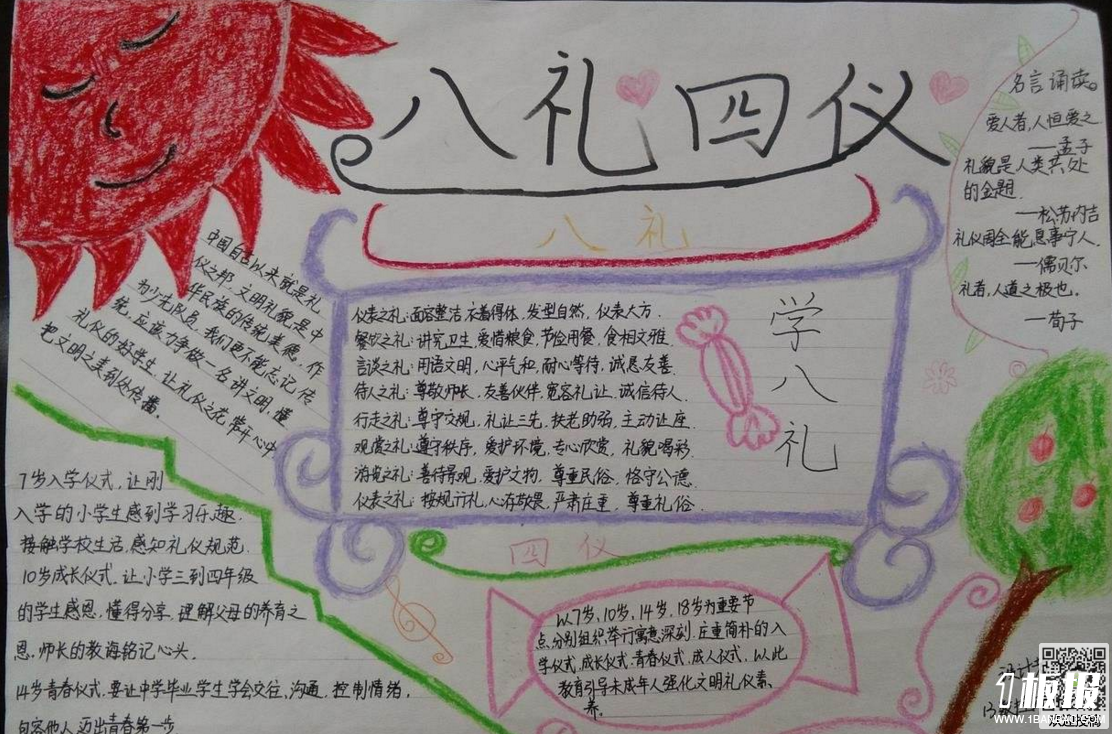 八礼四仪
名言诵读。
爱人者,人恒爱之
——孟子
礼貌是人类共处
的金题.
——松苏内吉
礼仪周全能息事宁人.
——儒贝尔
礼者,人道之极也.
——荀子
中国自古以来就是礼
仪之邦,文明礼貌是中
华民族的传统美德,作
为少先队员,我们更不能忘记传
统,应该力争做一名讲文明,懂
礼仪的好学生,让礼仪之花常开心中
把文明之美到处传播.
八礼
仪表之礼:面容整洁,衣着得体,发型自然,仪表大方.
餐饮之礼:讲究卫生,爱惜粮食,节俭用餐,食相文雅.
言谈之礼:用语文明,心平气和,耐心等待,诚恳友善.
待人之礼:尊敬师长,友善伙伴,宽容礼让,诚信待人.
行走之礼:尊守交规,礼让三先,扶老助弱,主动让座.
观赏之礼:遵守秩序,爱护环境,专心欣赏,礼貌喝彩.
游览之礼:善待景观,爱护文物,尊重民俗,恪守公德.
仪表之礼:按规行礼,心存敬畏,严肃庄重,尊重礼俗.
学八礼
7岁入学仪式,让刚
入学的小学生感到学习乐趣.
接触学校生活,感知礼仪规范.
10岁成长仪式,让小学三到四年级
的学生感恩,懂得分享,理解父母的养育之
恩,师长的教诲铭记心头.
14岁青春仪式,要让中学毕业学生学会交往,沟通,控制情绪,
包容他人,迈出青春第一步
四仪
以7岁、10岁、14岁、18岁为重要节
点,分别组织,举行寓意深刻、庄重简朴的入
学仪式,成长仪式,青春仪式,成人仪式,以此
教育引导未成年人强化文明礼仪素
养。
1板报
WWW.1BANBAO.COM
欢迎投稿